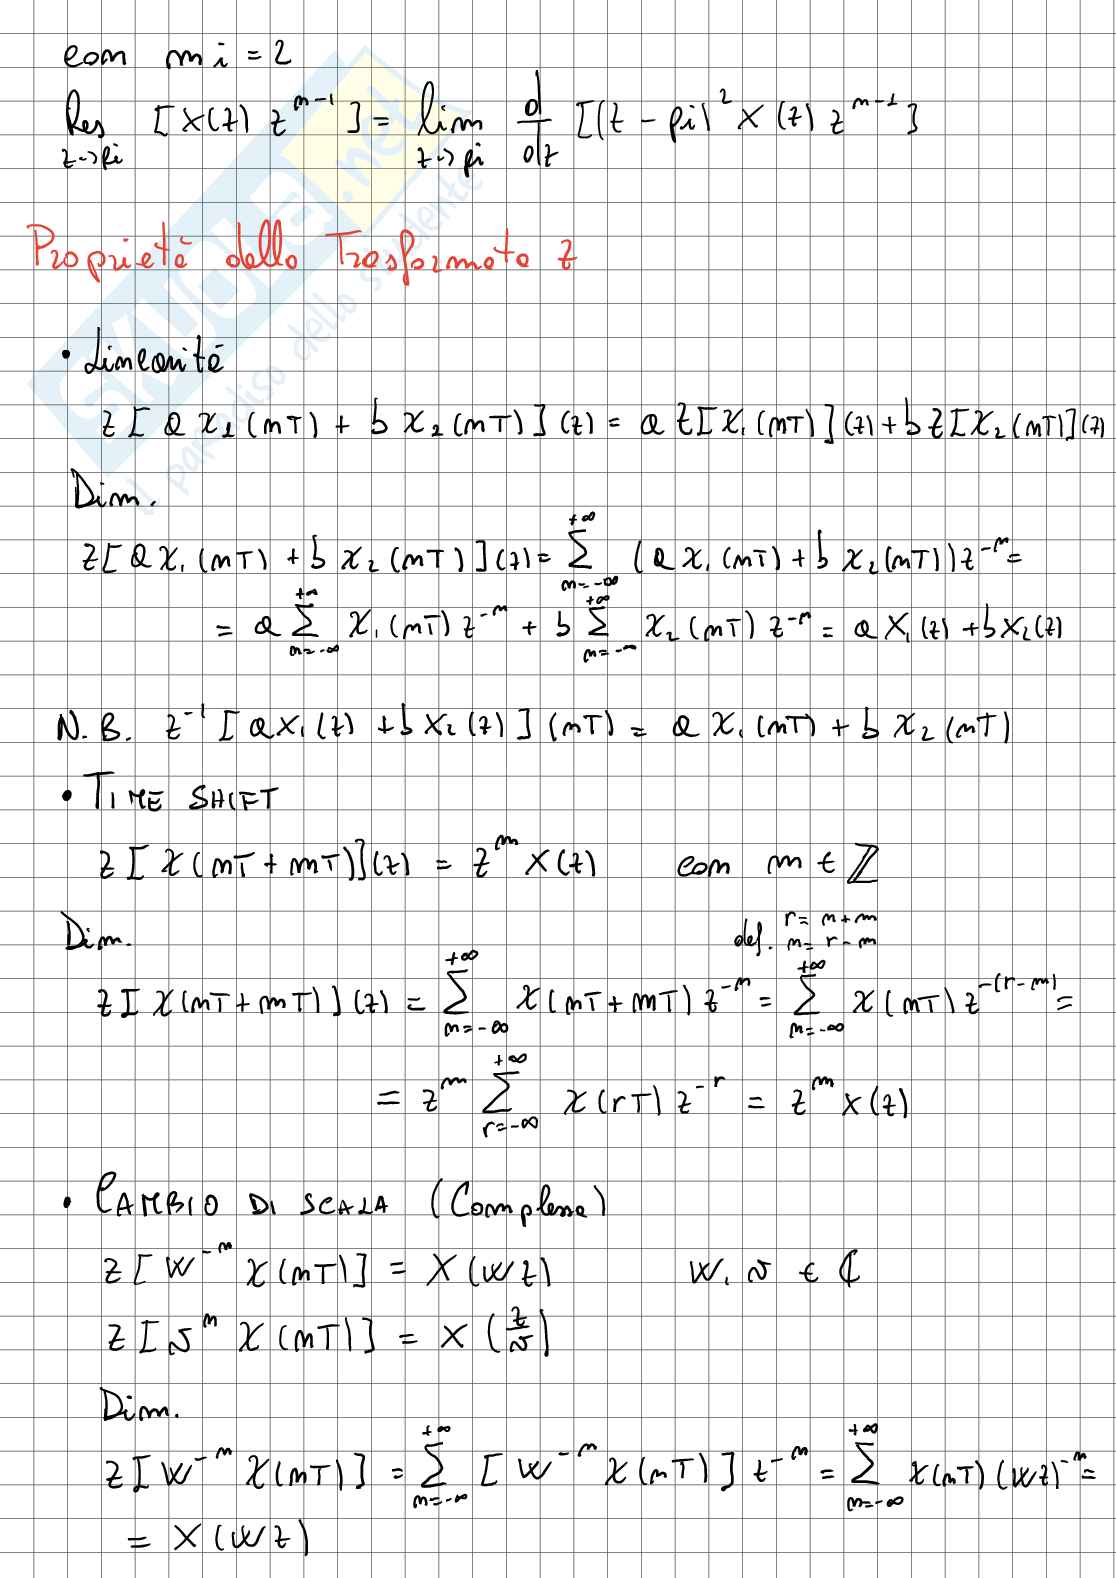 con mi = 2
Res [X(z) z^{n-1}] = lim d/dz [(z - pi)^2 X(z) z^{n-1}]
z->pi z->pi
Proprietà della Trasformata Z
• Linearità
Z[a x1(nT) + b x2(nT)](z) = a Z[x1(nT)](z) + b Z[x2(nT)](z)
Dim.
Z[a x1(nT) + b x2(nT)](z) = Σ_{n=-∞}^{+∞} (a x1(nT) + b x2(nT)) z^{-n} =
= a Σ_{n=-∞}^{+∞} x1(nT) z^{-n} + b Σ_{n=-∞}^{+∞} x2(nT) z^{-n} = a X1(z) + b X2(z)
N.B. Z^{-1}[a X1(z) + b X2(z)](nT) = a x1(nT) + b x2(nT)
• TIME SHIFT
Z[x(nT + mT)](z) = z^m X(z) con m ∈ ℤ
Dim. def. r = n + m
n = r - m
Z[x(nT + mT)](z) = Σ_{n=-∞}^{+∞} x(nT + mT) z^{-n} = Σ_{n=-∞}^{+∞} x(nT) z^{-(r-m)} =
= z^m Σ_{r=-∞}^{+∞} x(rT) z^{-r} = z^m X(z)
• CAMBIO DI SCALA (Complessa)
Z[W^{-n} x(nT)] = X(Wz) W, v ∈ ℂ
Z[v^n x(nT)] = X(z/v)
Dim.
Z[W^{-n} x(nT)] = Σ_{n=-∞}^{+∞} [W^{-n} x(nT)] z^{-n} = Σ_{n=-∞}^{+∞} x(nT) (Wz)^{-n} =
= X(Wz)
SKUOLA.net
il paradiso dello studente